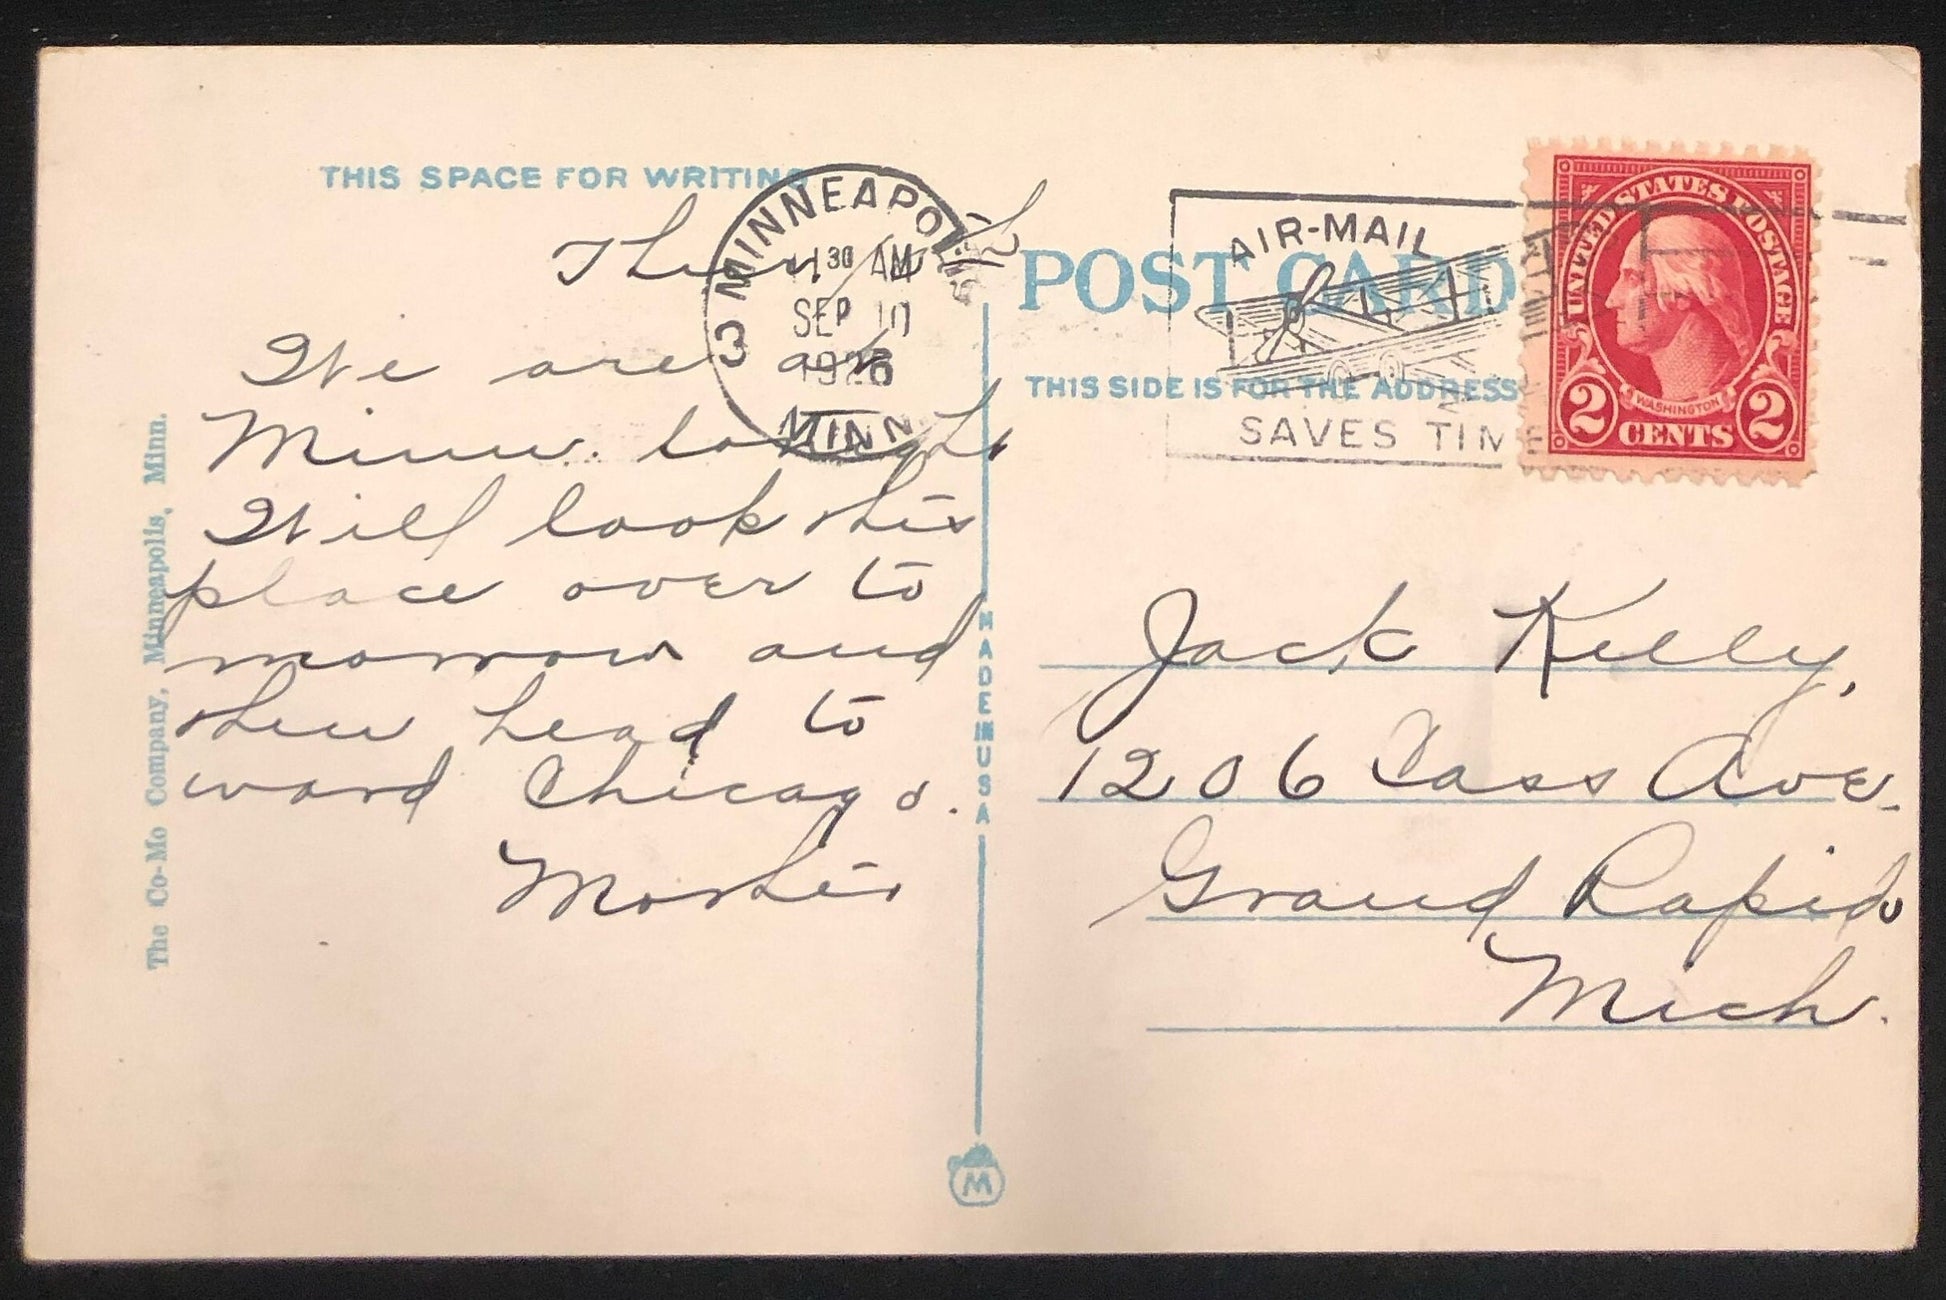 THIS SPACE FOR WRITING
Thurs.
We are at
Minn. to night
Will look this
place over to
morrow and
then head to
ward Chicago.
Mother
The Co-Mo Company, Minneapolis, Minn.
MINNEAPOLIS
30 AM
SEP 10
1926
MINN.
3
MADE IN USA
M
POST CARD
THIS SIDE IS FOR THE ADDRESS
AIR-MAIL
SAVES TIME
UNITED STATES POSTAGE
WASHINGTON
2 CENTS 2
Jack Kelly,
1206 Cass Ave.
Grand Rapids
Mich.